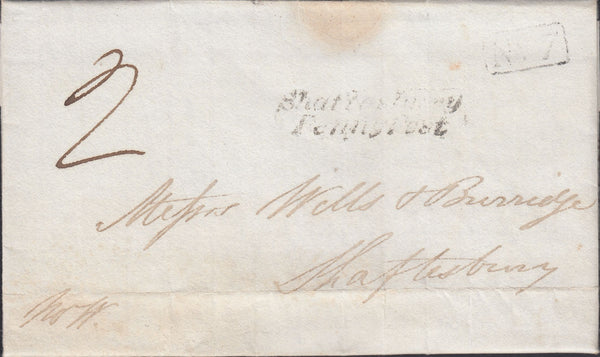 No. 7
2
Shaftesbury
Penny Post
Messrs Wells & Burridge
Shaftesbury